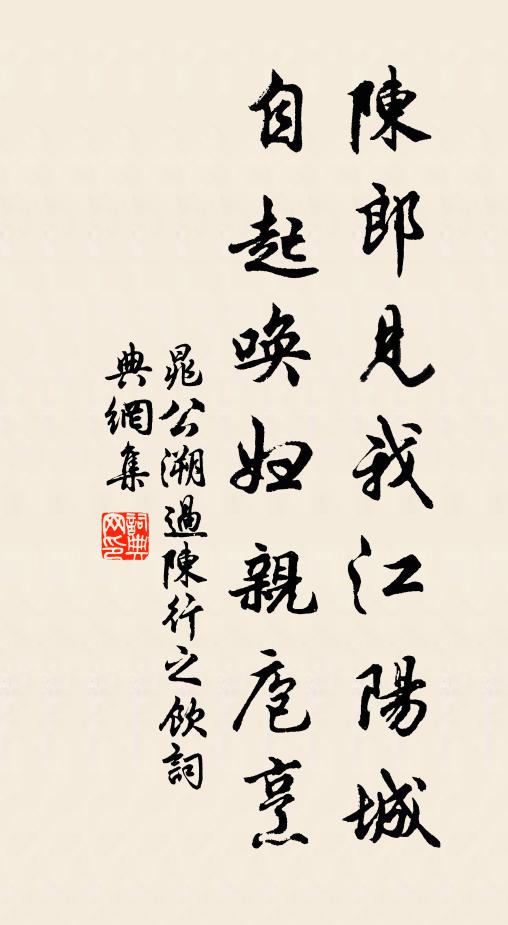 陳郎見我江陽城
自起喚婦親庖烹
晁公溯過陳行之飲詞
典網集
詞典
网印